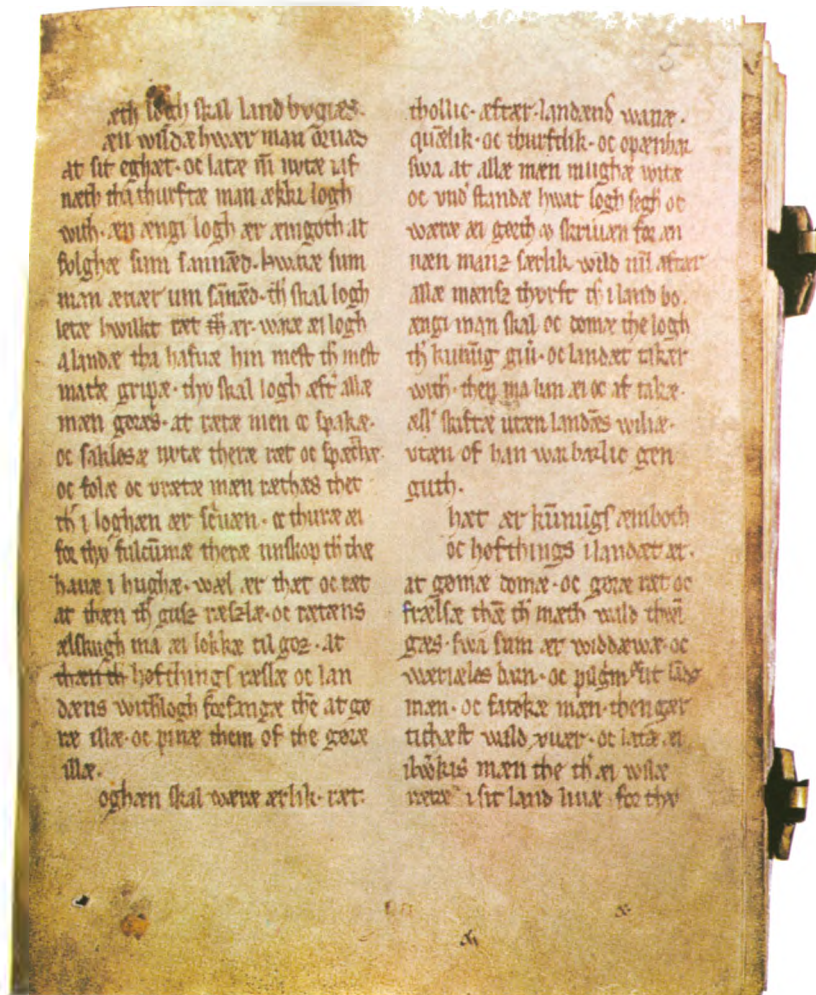 æth logh skal land bygiæs.
æn wildæ hwær man ørnæs
at sit eghæt. oc latæ m̄ nytæ iaf
næth tha thurftæ man ækki logh
with. æn ængi logh ær æmgoth at
følghæ sum sannænd. hwaræ sum
man æuær um sannænd. th̄ skal logh
letæ hwilkt ræt th̄ ær. waræ æi logh
a landæ tha hafuæ hin mest th̄ mest
matæ gripæ. thy skal logh æft̛ allæ
mæn goræs. at rætæ men oc spakæ.
oc saklosæ nytæ theræ ræt oc spækhæ
oc folæ oc vrætæ mæn ræthæs thet
th̄ i loghæn ær scriuæn. oc thuræ æi
for thy fulcumæ theræ unskop th̄ the
hauæ i hughæ. wæl ær thæt oc ræt
at thæn th̄ guz ræzlæ. oc rætæns
ælskugh ma æi lokkæ til goz. at
thæn th̄ hofthings ræslæ oc lan
dæns withærlogh forfangæ the at gø
ræ illæ. oc pinæ them of the gøræ
illæ.
oghæn skal wæræ ærlik. ræt.
thollic. æftær. landæns wanæ.
quēlik. oc thurftlik. oc opænbar
swa at allæ mæn mughæ witæ
oc vnd̛standæ hwat logh segh̛ oc
wæræ æi gørth æ skriuæn for æn
næn manz særlik wild num æftær
allæ mænsz thyrft th̄ i land bo.
ængi man skal oc dømæ the logh
th̄ kunūg giu̅. oc landæt takær
with. then ma han æi oc af takæ.
æll̛ skiftæ utæn landæs wiliæ.
vtæn of han war barlic gen
guth.
hæt ær kūnūgs æmboth
oc hofthings i landæt ær.
at gømæ domæ. oc gøræ ræt oc
frælsæ thē th̄ mæth wald thwi
gæs. swa sum ær widdæwæ. oc
wæriæløs børn. oc pilgrim oc ut lændis
mæn. oc fatøkæ mæn. then gær
tichæst wald yuær. oc latæ æi
ilwirkis mæn the th̄ æi wilæ
rætæs i sit land liuæ. for thy